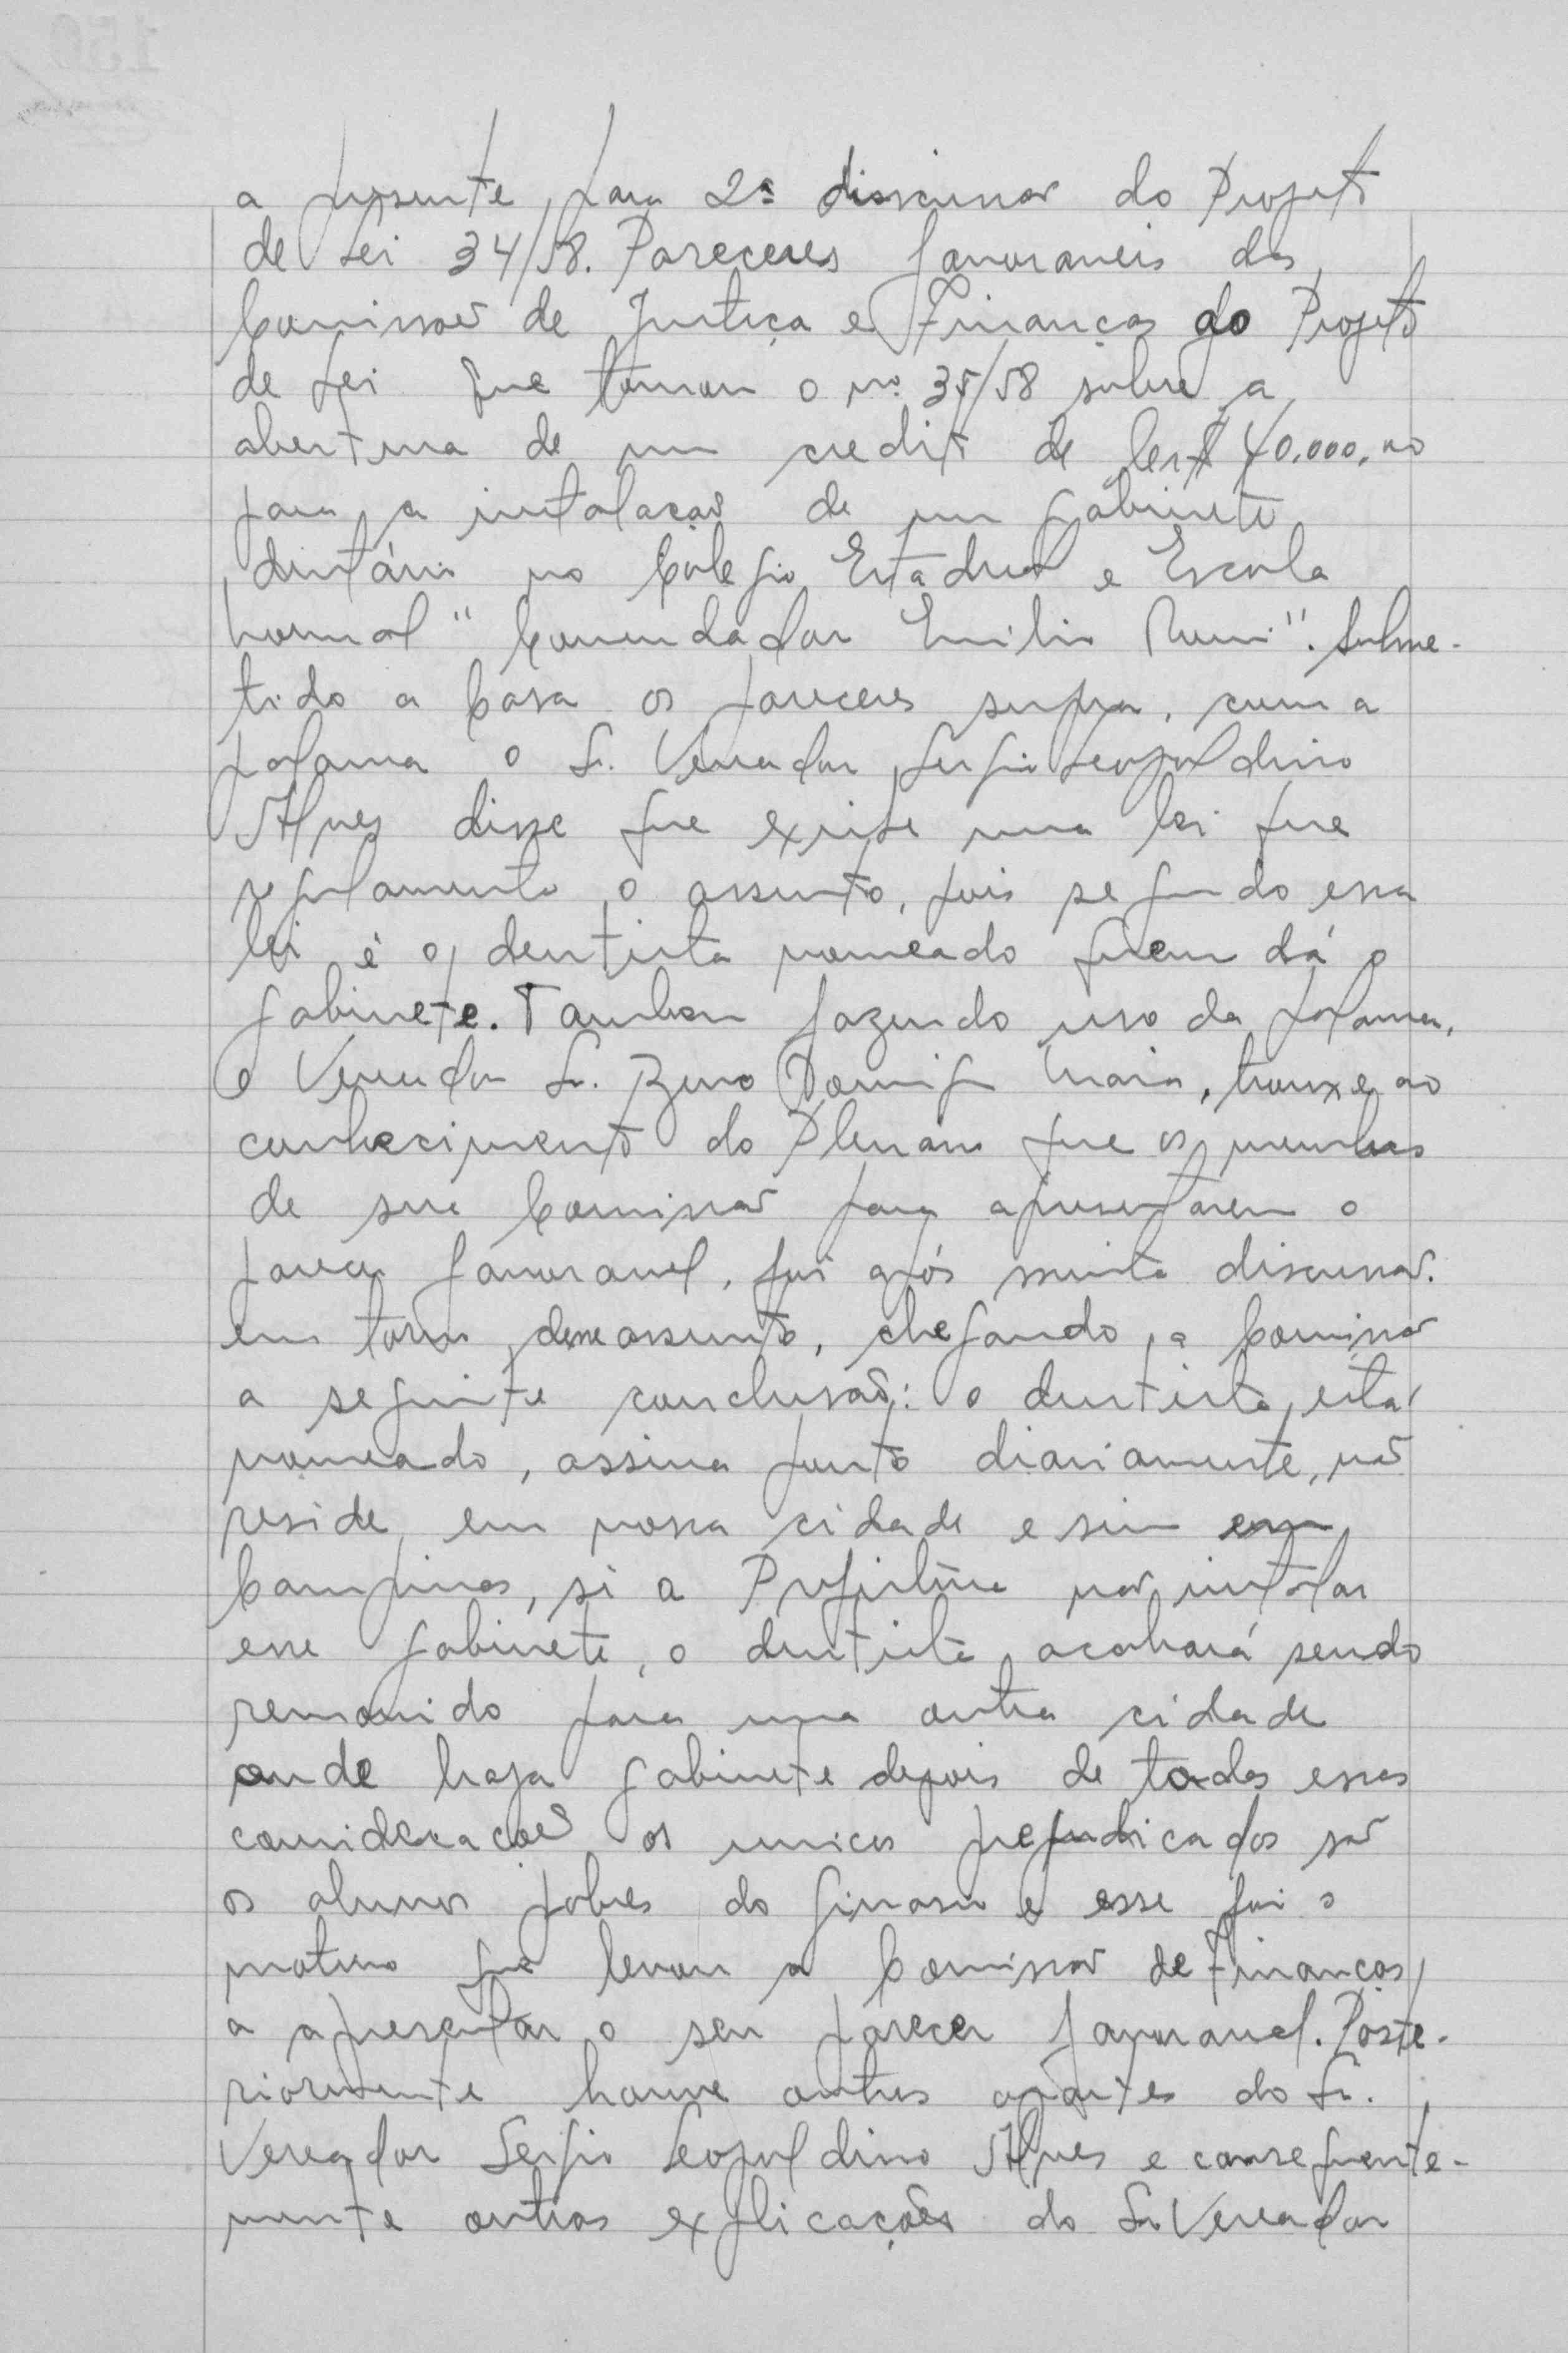 a presente para 2ª discussão do Projeto
de Lei 34/58. Pareceres favoraveis das
Comissões de Justiça e Finanças ao Projeto
de Lei que tomou o nº 35/58 sobre a
abertura de um credito de Cr$ 40.000,00
para a instalação de um gabinete
dentário no Colegio Estadual e Escola
Normal "Comendador Emilio Romi". Subme-
tido a Casa os pareceres supra, com a
palavra o Sr. Vereador Sergio Leopoldino
Alves disse que existe uma lei que
regulamenta o assunto, pois segundo essa
lei é o dentista nomeado quem dá o
gabinete. Tambem fazendo uso da palavra,
o Vereador Sr. Maia, trouxe ao
conhecimento do Plenario que os membros
de sua Comissão para apresentarem o
parecer favoravel, foi após muita discussão.
em torno desse assunto, chegando a Comissão
a seguinte conclusão: o dentista está
nomeado, assina ponto diariamente, não
reside em nossa cidade e sim em
Campinas, si a Prefeitura não instalar
esse gabinete, o dentista acabará sendo
removido para uma outra cidade
onde haja gabinete depois de todas essas
considerações os unicos prejudicados são
os alunos pobres do Ginasio e esse foi o
motivo que levou a Comissão de Finanças
a apresentar o seu parecer favoravel. Poste-
riormente houve outros apartes do Sr.
Vereador Sergio Leopoldino Alves e consequente-
mente outras explicações do Sr Vereador